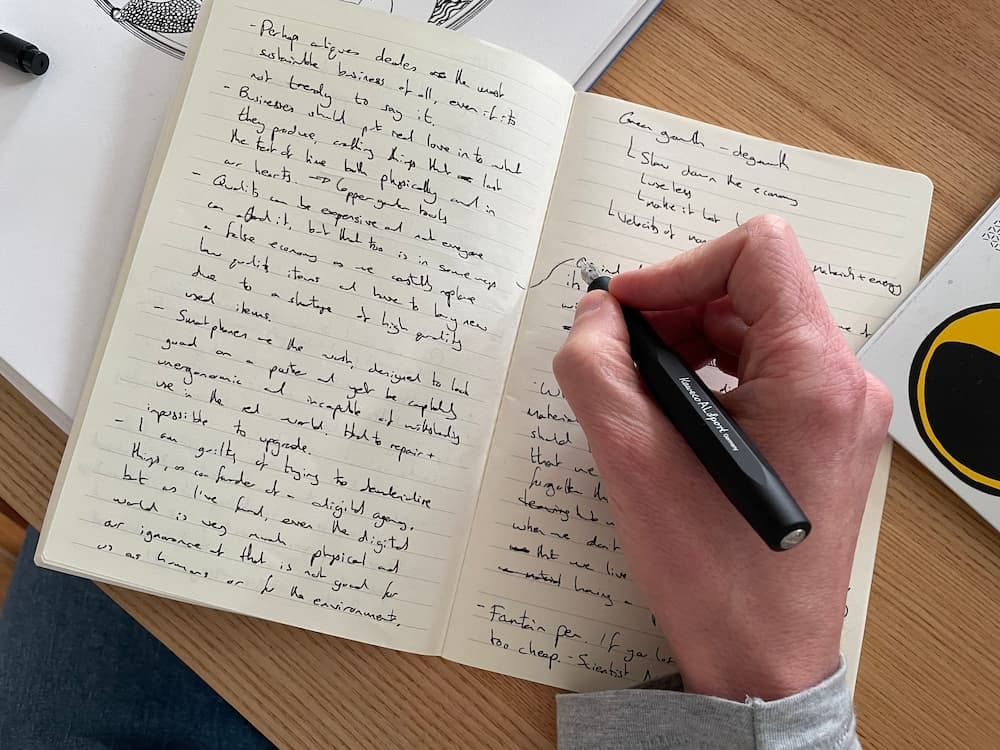 - Perhaps antiques dealers are the most
sustainable business of all, even if its
not trendy to say it.
- Businesses should put real love in to what
they produce, crafting things that last
the test of time both physically and in
our hearts. → Copper garden tools
- Quality can be expensive and not everyone
can afford it, but that too is in some ways
a false economy as we constantly replace
low quality items and have to buy new
due to a shortage of high quality
used items.
- Smartphones are the worst, designed to look
good on a poster and yet be completely
unergonomic and incapable of withstanding
use in the real world. Hard to repair +
impossible to upgrade.
- I am guilty of trying to dematerialise
things, as co-founder of a digital agency.
but as I've found, even the digital
world is very much physical and
our ignorance of that is not good for
us as humans or for the environment.
Green growth - degrowth
Slow down the economy
Use less
Make it last
Velocity of
materials + energy
material
should
that we
forgotten
when we don't
that we live
having a
- Fountain pen. If you
too cheap. - Scientist
Kaweco AL Sport Germany